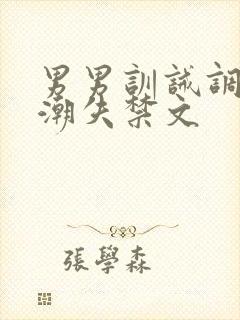 男男訓誡調
潮失禁文
張學森